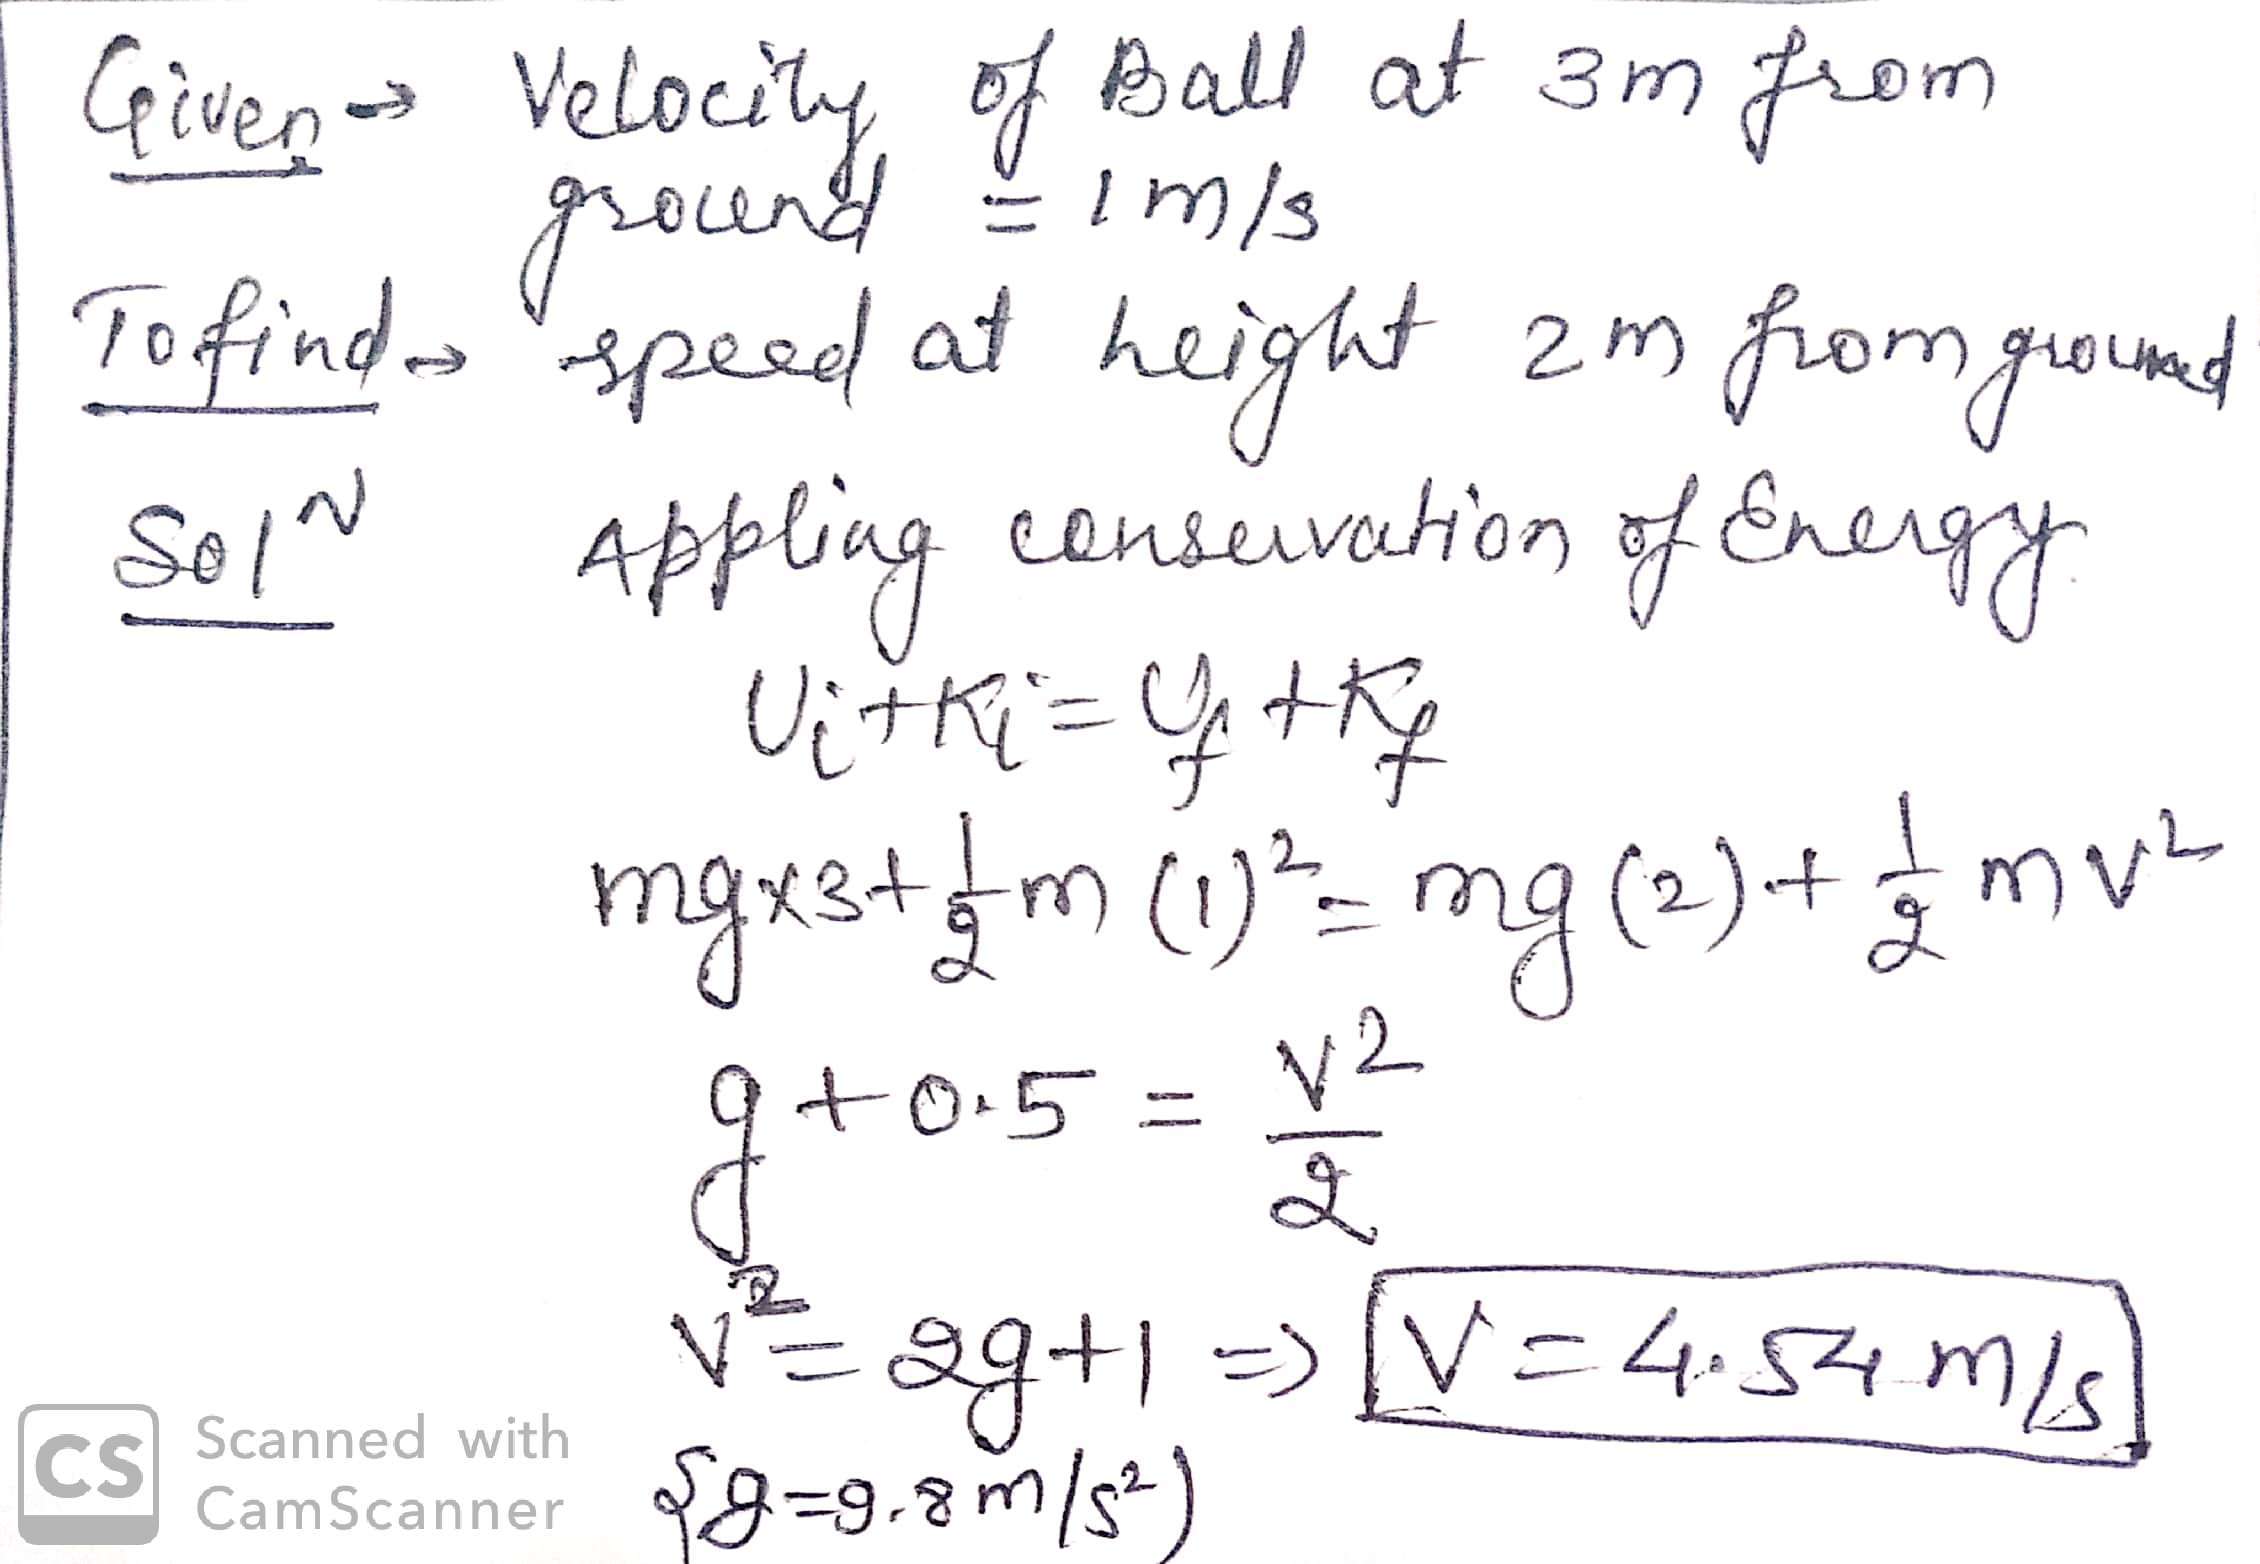 Given → Velocity of Ball at 3m from
ground = 1 m/s
To find → speed at height 2 m from ground
Sol^N Appling conservation of Energy
U_i + K_i = U_f + K_f
mg×3 + 1/2 m (1)² = mg (2) + 1/2 m v²
g + 0.5 = v²/2
v² = 2g+1 => V = 4.54 m/s
{g = 9.8 m/s²)
CS Scanned with
CamScanner